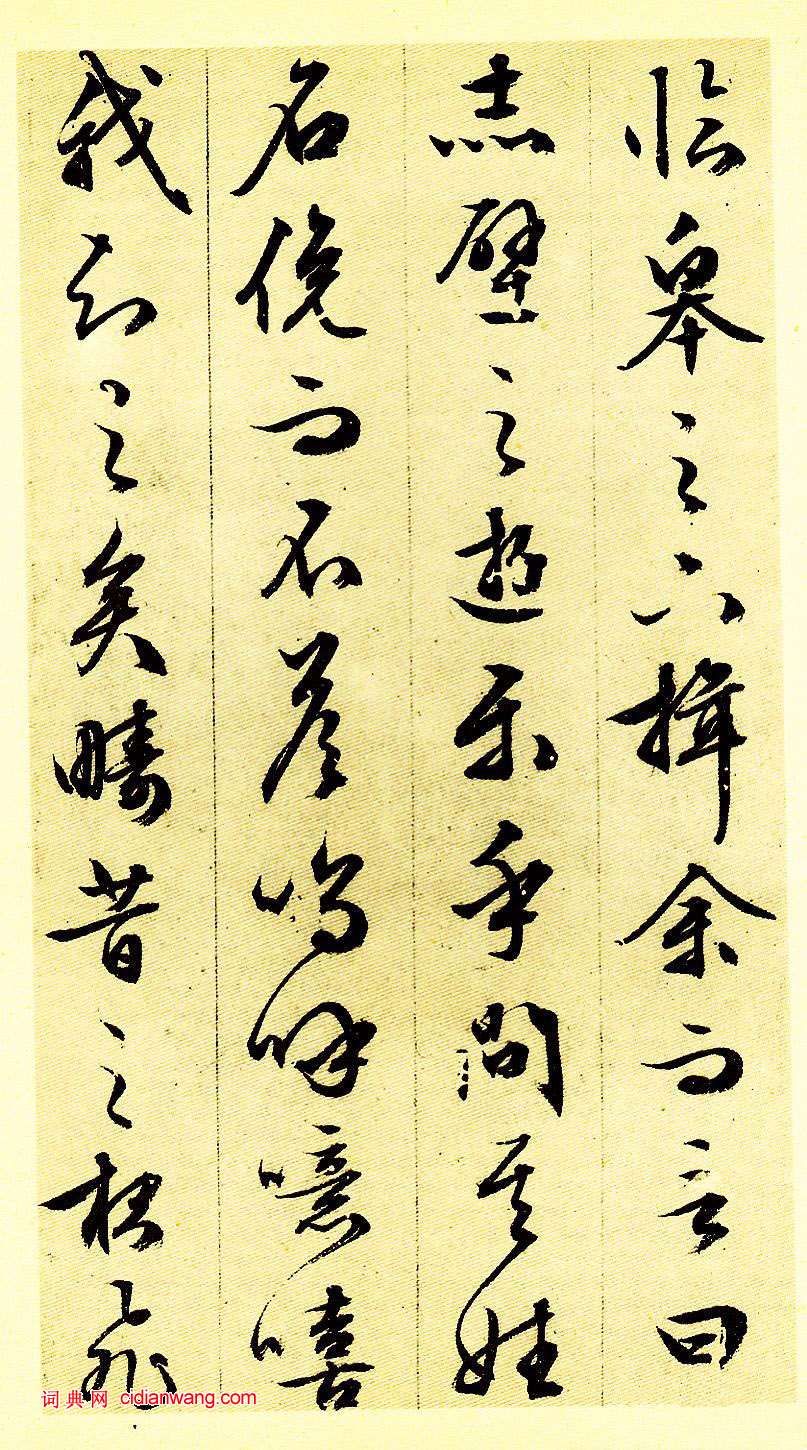 臨皋之下揖余而言曰
赤壁之遊樂乎問其姓
名俛而不答嗚呼噫嘻
我知之矣疇昔之夜飛
词典网 cidianwang.com